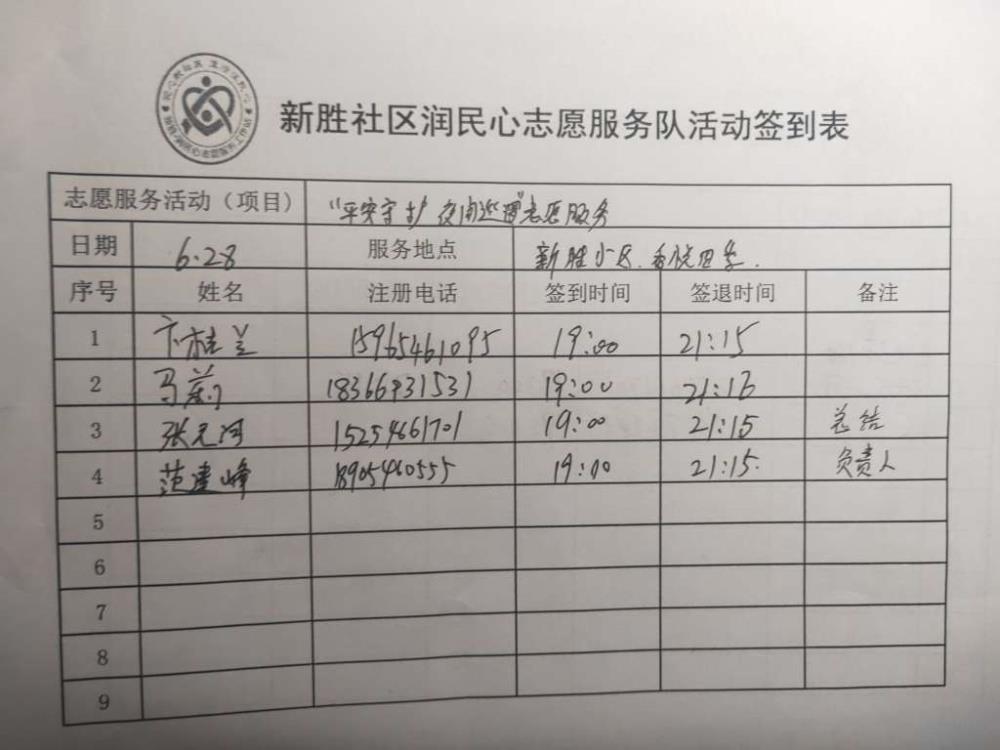 新胜社区润民心志愿服务队活动签到表
志愿服务活动（项目） “平安守护 夜间巡逻”志愿服务
日期 6.28 服务地点 新胜小区.香悦四季.
序号 姓名 注册电话 签到时间 签退时间 备注
1 卞桂兰 15965461095 19:00 21:15
2 马莉 18366931531 19:00 21:16
3 张元河 15254661701 19:00 21:15 总结
4 范建峰 18905460555 19:00 21:15. 负责人
5
6
7
8
9